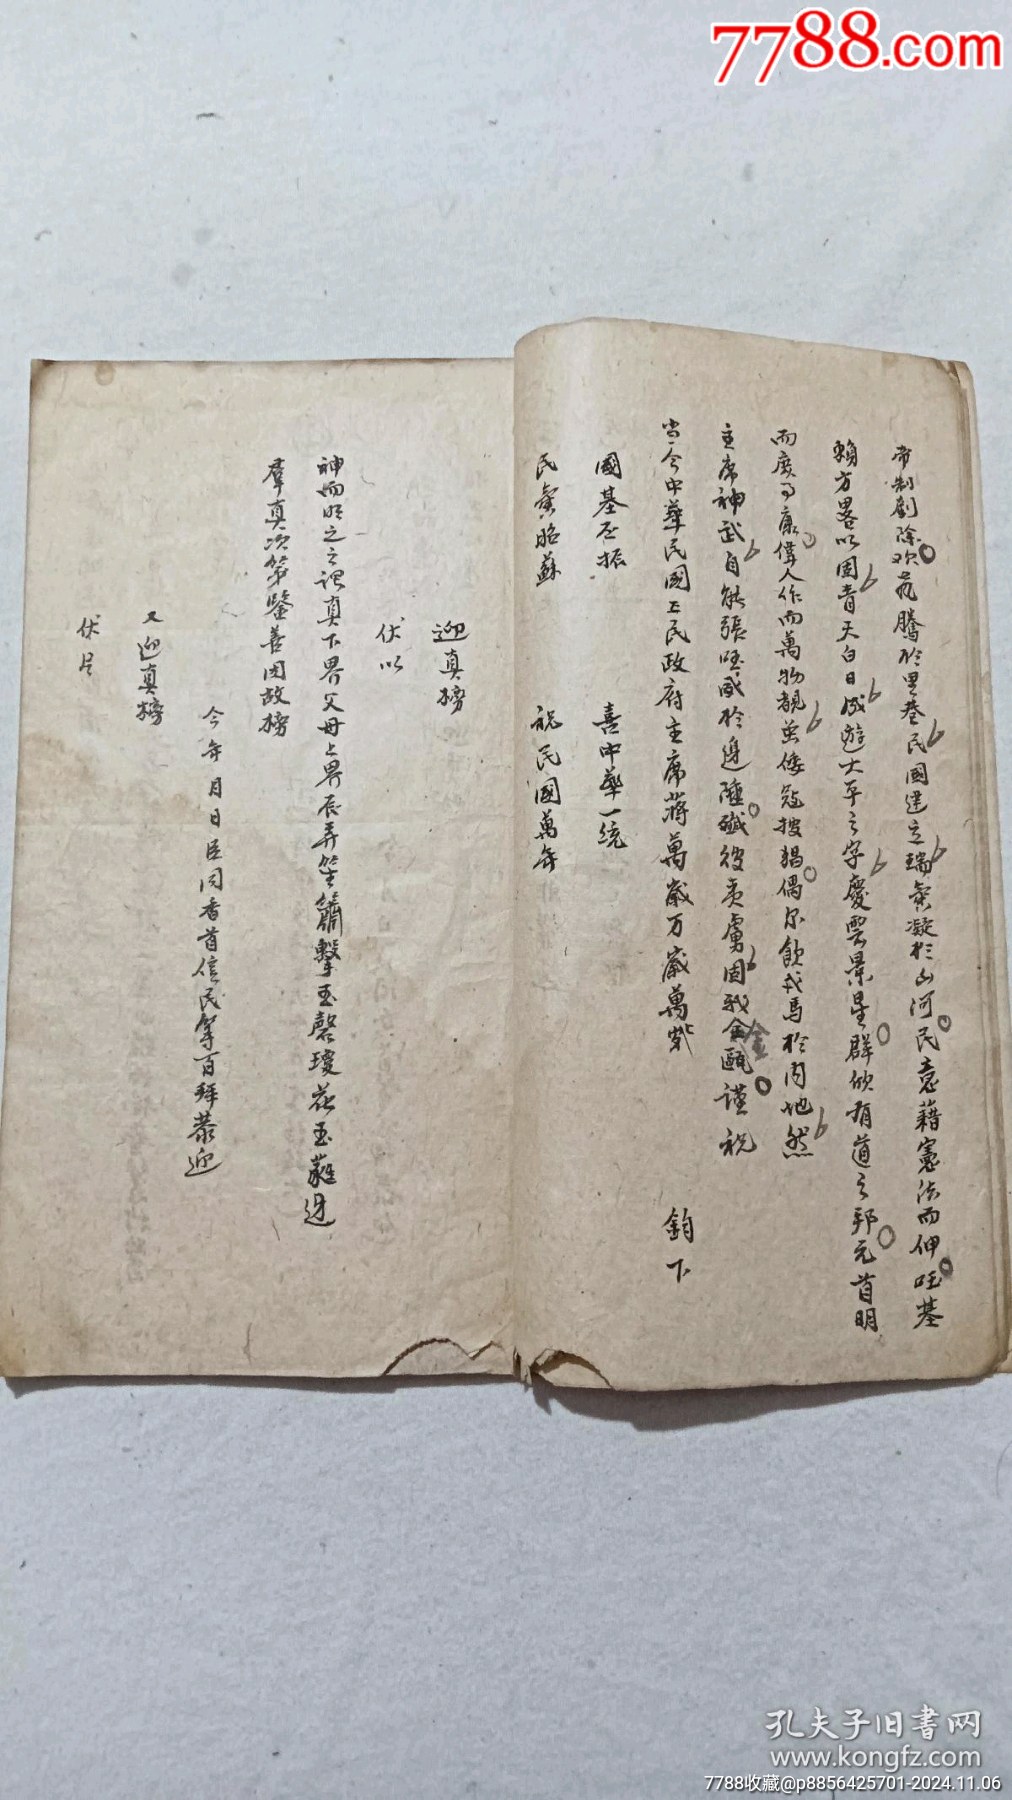 7788.com
帝制剷除欢庆騰於里巷民國建立瑞氣凝於山河民意藉憲法而伸旺基
賴方畧以固青天白日咸遊太平之宇慶雲景星群欣有道之邦元首明
而庶事康偉人作而萬物覩茲倭寇披猖偶尔飲戎馬於内地然
主席神武自能張旺威於邊陲殲彼夷虜固我金甌謹祝
當今中華民國民政府主席蔣萬歲万歲萬歲 鈞下
國基丕振 喜中華一統
民氣昭蘇 祝民國萬年
迎真榜
伏以
神而明之之謂真下界父母上界辰弄笙簫擊玉磬瓊花玉蕋迓
羣真次第鑒善因故榜
今年月日臣同香首信民等百拜恭迎
又迎真榜
伏以
孔夫子旧書网
www.kongfz.com
7788收藏@p8856425701-2024.11.06